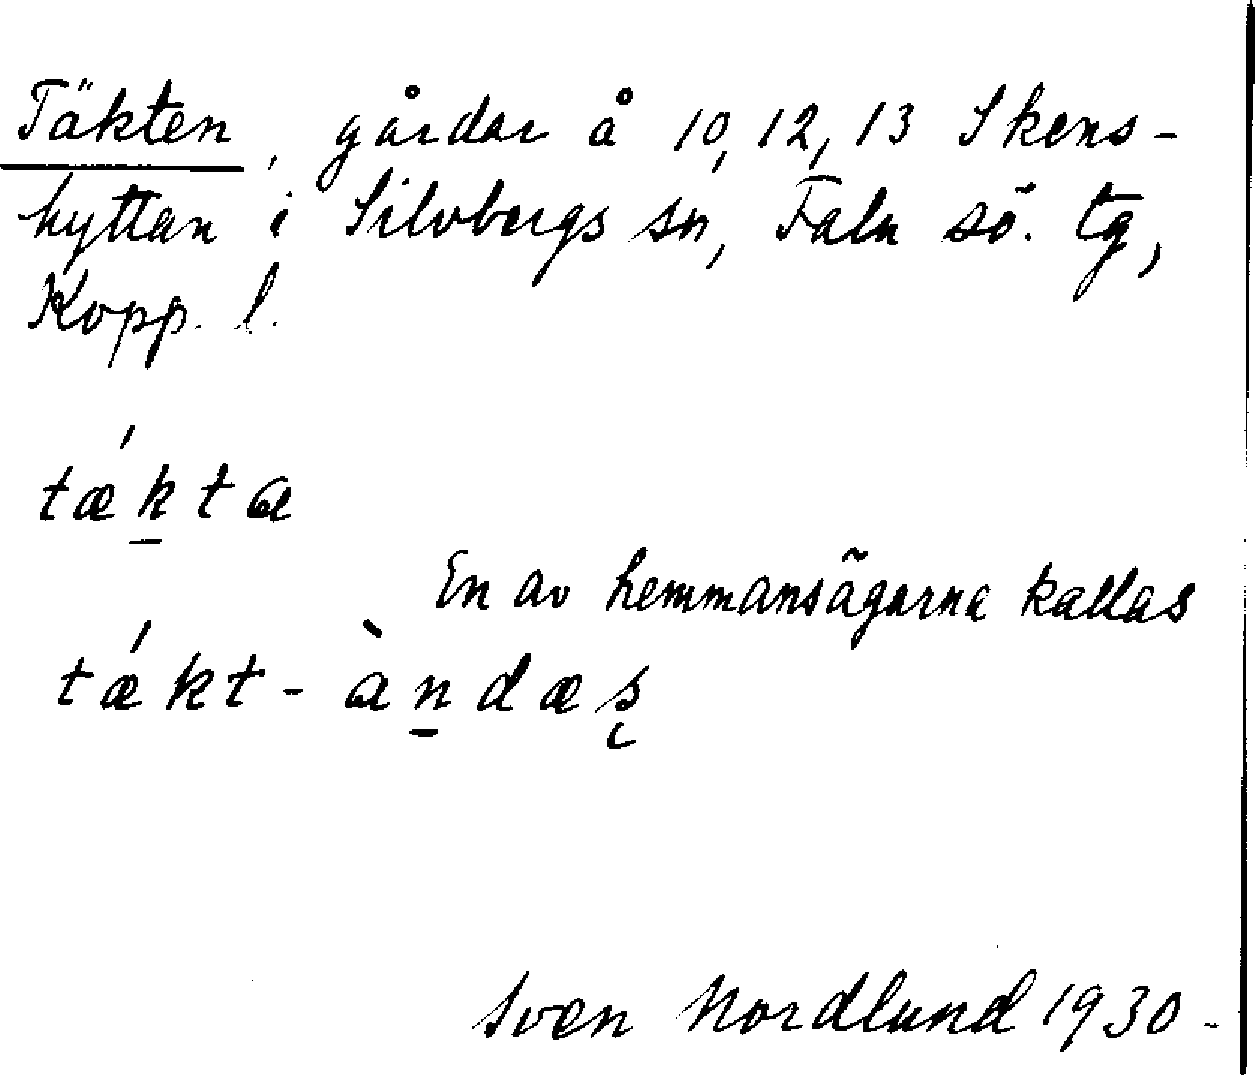 Täkten, gårdar å 10, 12, 13 Skens-
hyttan i Silvbergs sn, Falu sö. tg,
Kopp. l.
tǽkta
En av hemmansägarne kallas
tǽkt-àndæs
Sven Nordlund 1930.